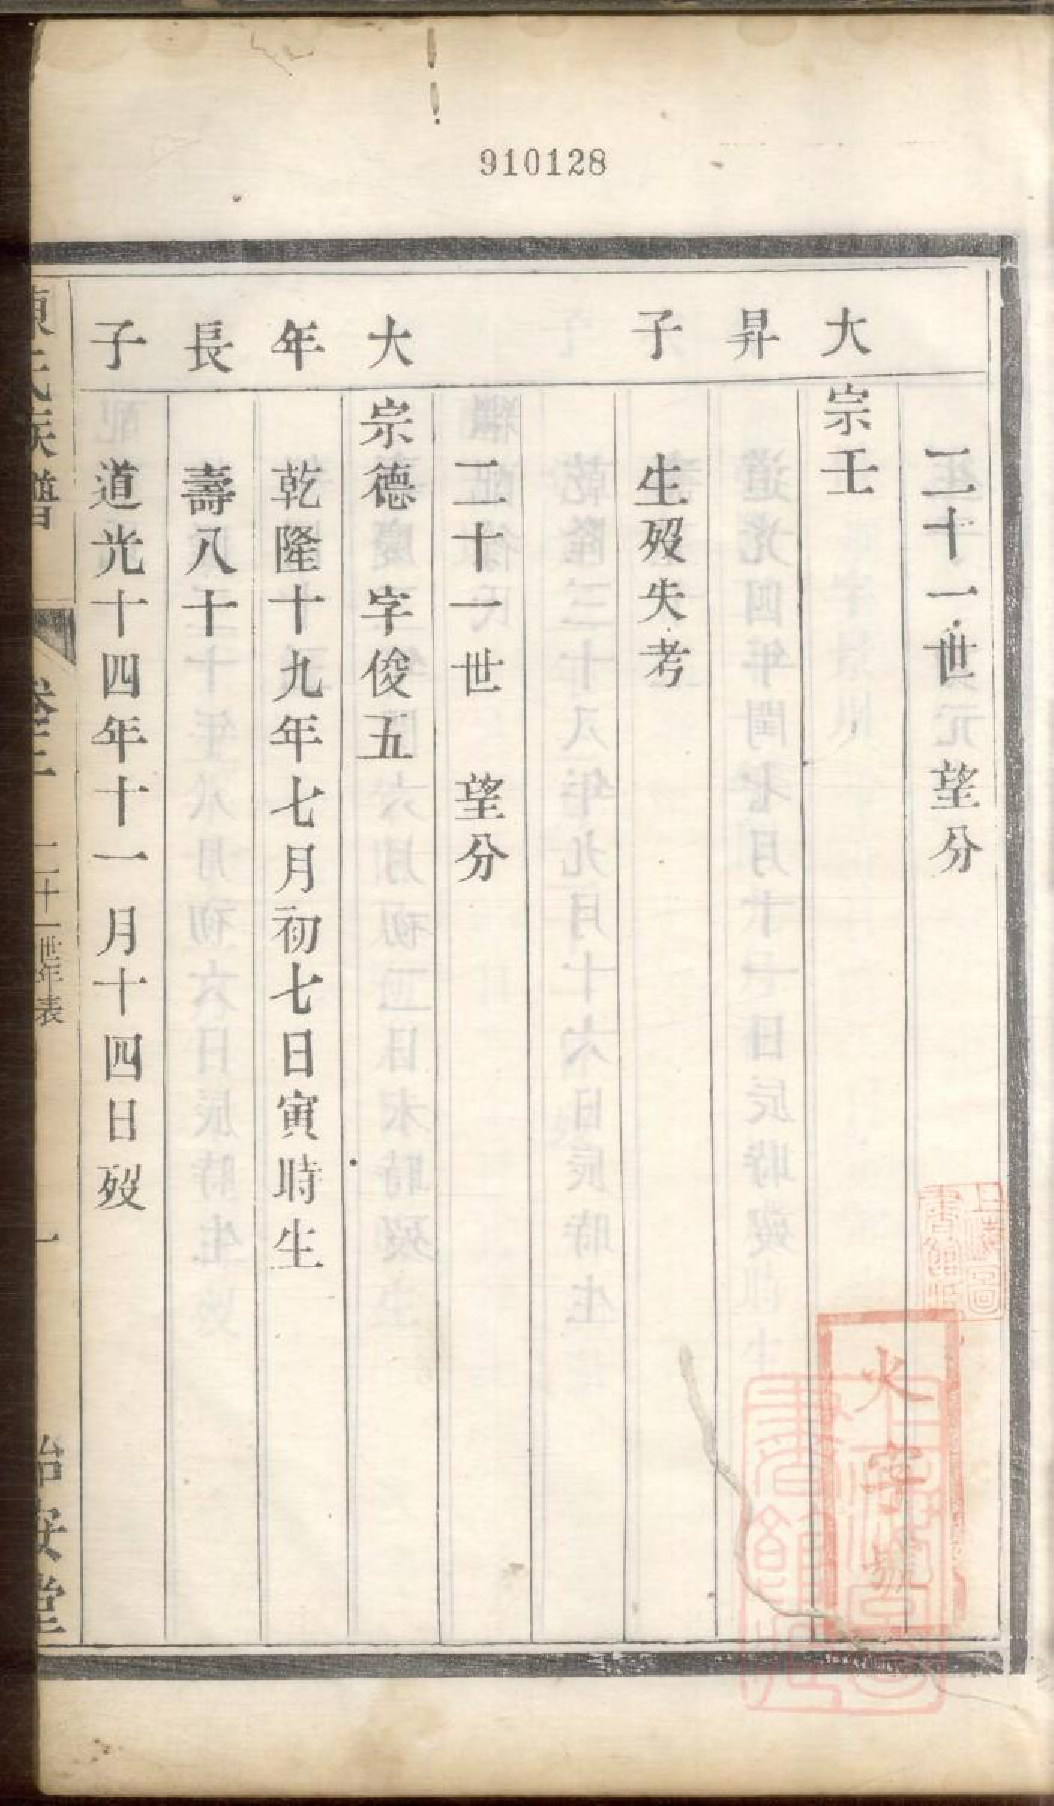 910128
二十一世 望分
大 宗壬
昇
子 生歿失考
二十一世 望分
大 宗德 字俊五
年 乾隆十九年七月初七日寅時生
長 壽八十
子 道光十四年十一月十四日歿
氏族譜
二十一世年表
一
火字號